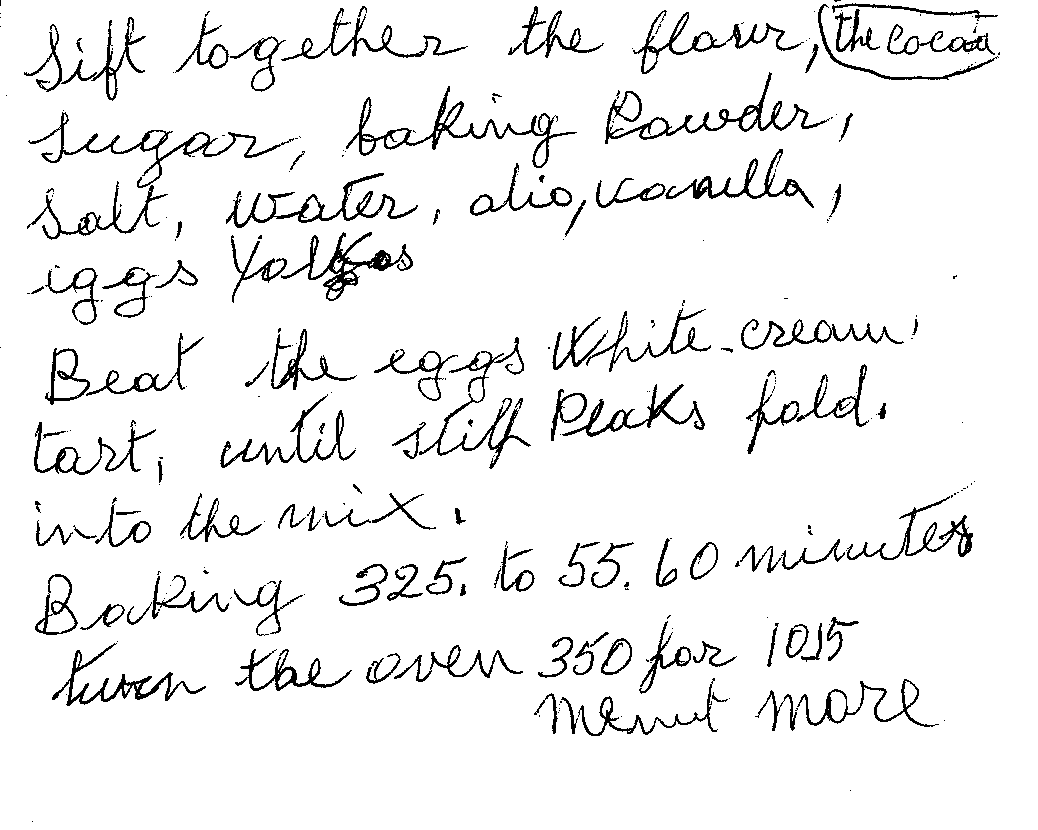 Sift together the flour, (the cocoa
sugar, baking Powder,
Salt, Water, olio, vanilla,
eggs Yolkos
Beat the eggs White-cream
tart, until stiff Peaks fold.
into the mix.
Baking 325. to 55. 60 minutes
turen the oven 350 for 1015
menut more